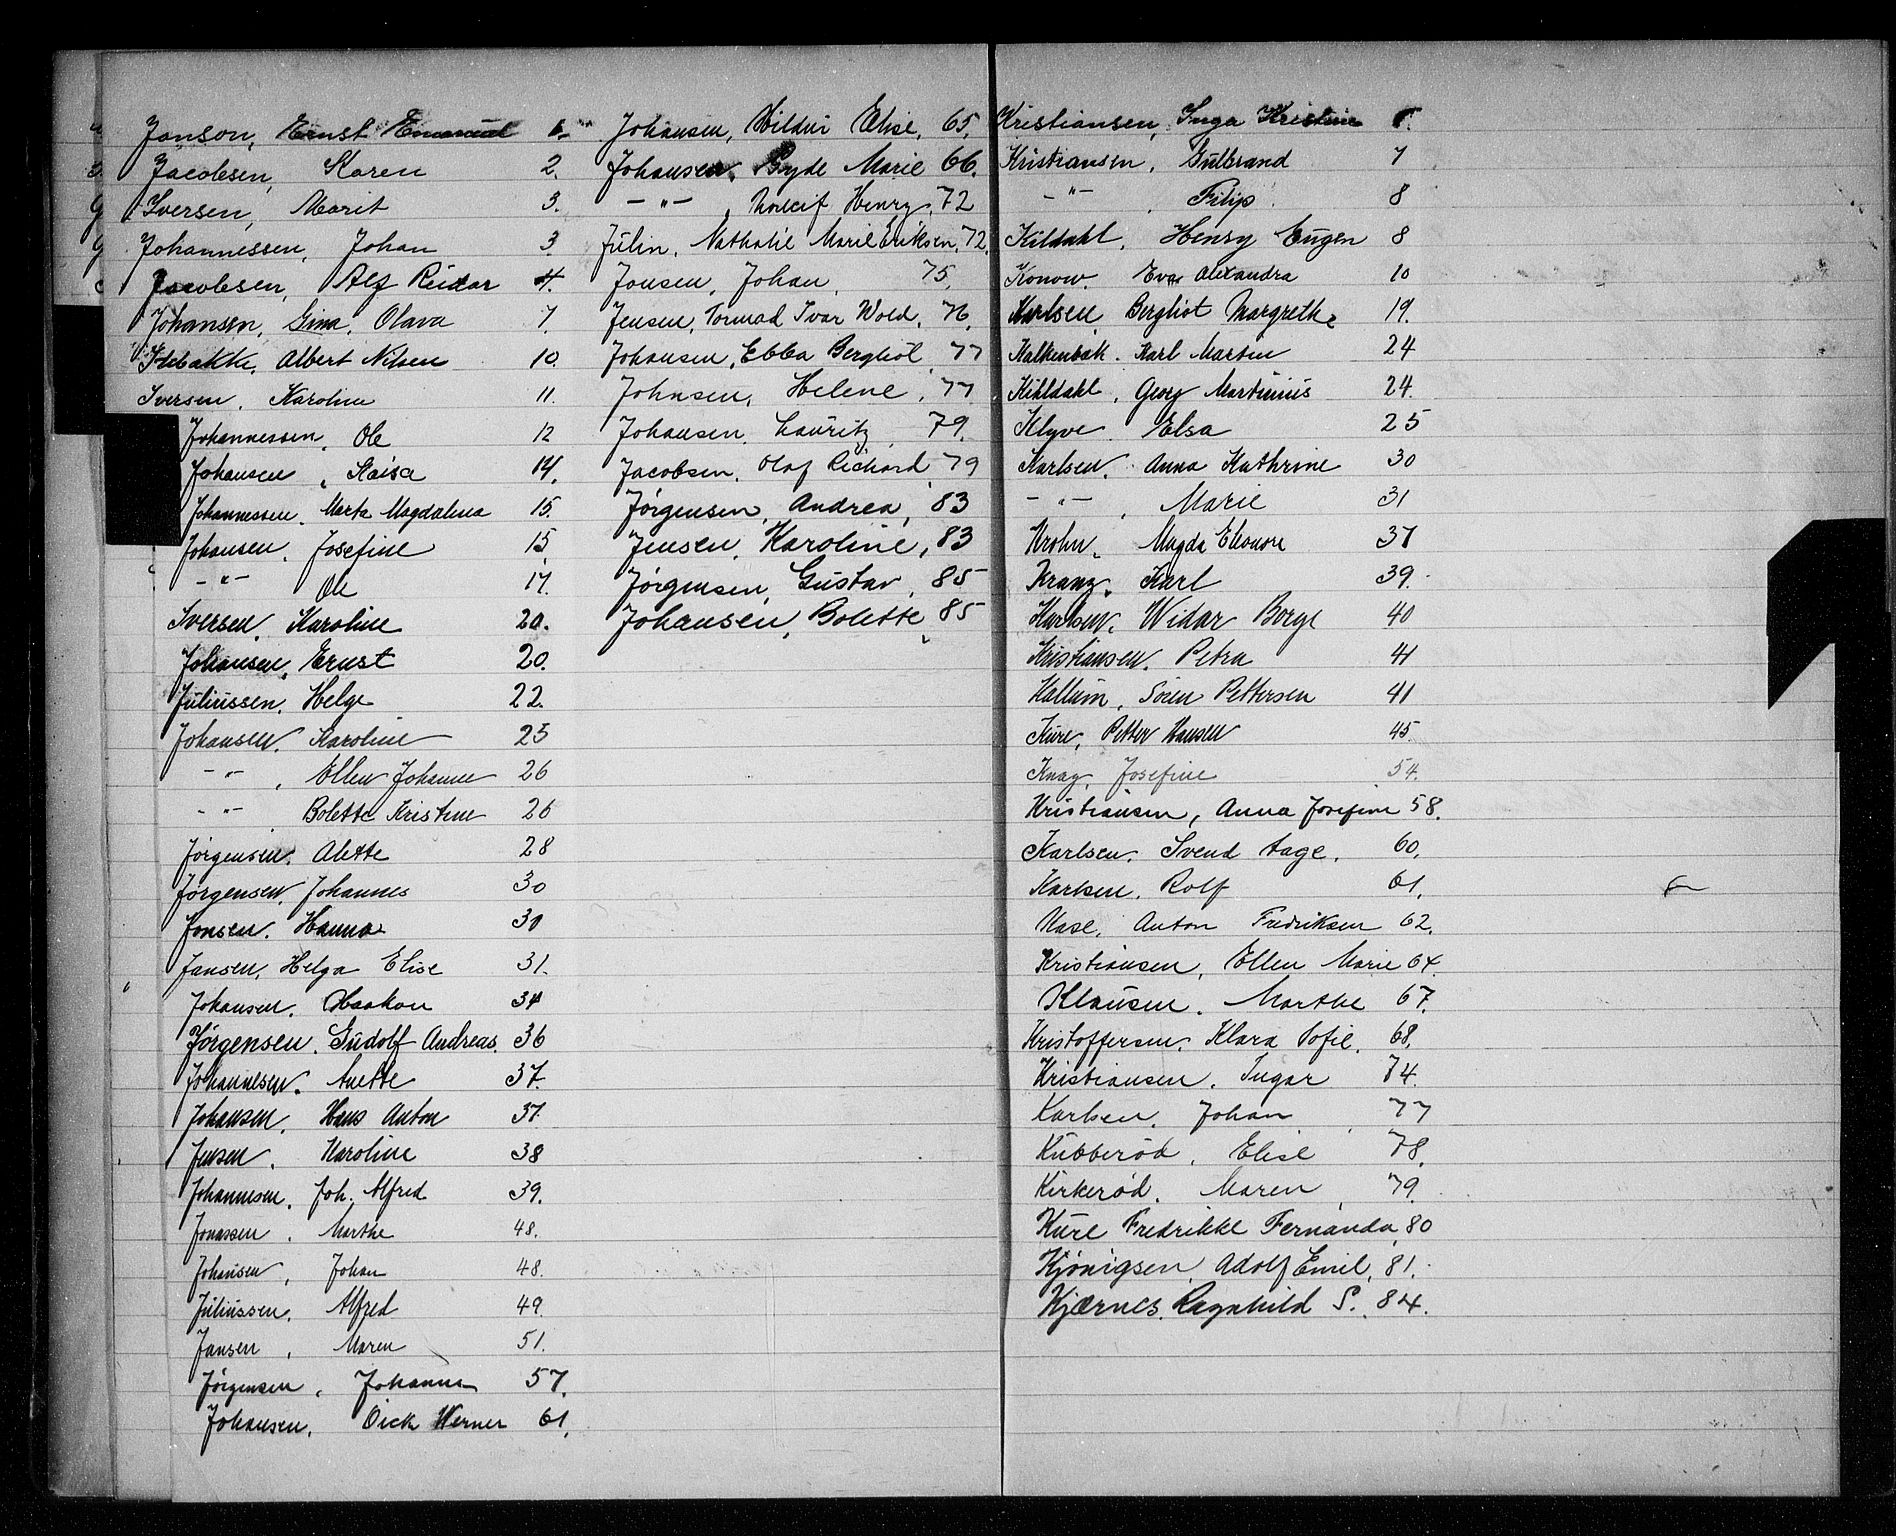 Janson, Ernst Emanuel 1.
Jacobsen, Karen 2.
Iversen, Marit 3.
Johannessen, Johan 3
Jacobsen, Alf Reidar 4.
Johansen, Gina, Olava 7.
Albert Nilsen 10.
Iversen, Karoline 11.
Johannessen, Ole 12
Johansen, Kaisa 14.
Johannessen. Marta Magdalena 15.
Johansen. Josefine 15
-"- Ole 17.
Iversen, Karoline 20.
Johansen, Ernst 20.
Juliussen, Helge 22.
Johansen, Karoline 25
-"-, Ellen Johanne 26
-"-, Bolette Kristine 26
Jörgensen, Alette 28
Jörgensen, Johannes 30
Jonsen. Hanna 30
Jansen, Helga Elise 31.
Johansen. Haakon 34
Jörgensen. Gudolf Andreas. 36
Johannesen. Anette 37.
Johansen. Hans Anton 37
Jensen. Karoline 38
Johannesen. Joh. Alfred 39.
Jonassen, Marthe 48.
Johansen, Johan 48.
Juliussen. Alfred 49.
Jansen, Maren 51.
Jörgensen, Johanne 57.
Johansen. Dick Werner 61.
Johansen, Hildur Elise, 65.
Johansen. Gyde Marie 66.
-"-, Henry, 72
Julin. Nathalie Marie Eriksen, 72.
Jonsen, Johan, 75.
Jensen, Tormod Ivar Wold. 76.
Johansen, Ebba Bergliot, 77
Johnsen, Helene, 77
Johansen. Lauritz, 79.
Jacobsen. Olaf Richard, 79
Jørgensen, Andrea, 83
Jensen, Karoline, 83
Jørgensen, Gustav, 85
Johansen, Bolette, 85
Kristiansen, Inga Kristine 5.
Kristiansen, Gulbrand 7
-"-, Filip. 8
Kildahl, Henry Eugen 8
Konow. Eva Alexandra 10
Karlsen Bergliot Margrethe 19.
Kalkenbak. Karl Martin 24
Kihldahl, Georg Martinius 24.
Klyve Elsa 25
Karlsen. Anna Kathrine 30
-"-, Marie 31
Krohn. Magda Eleonore 37
Kranz, Karl 39.
Karlsen, Widar Borge 40
Kristiansen. Petra 41
Kallum, Sören Pettersen 41
Kure, Petter Hansen 45.
Knag, Josefine 54.
Kristiansen, Anna Josefine 58.
Karlsen. Svend Aage. 60.
Karlsen. Rolf 61.
Kase, Anton Fredriksen 62.
Kristiansen, Ellen Marie 64.
Klausen. Marthe 67.
Kristoffersen. Klara Sofie. 68.
Kristiansen. Ingar 74.
Karlsen. Johan, 77
Kubberød, Elise 78.
Kirkerød. Maren, 79
Kure Fredrikke Fernanda, 80
Kjönigsen, Adolf Emil, 81.
Kjærnes. Ragnhild S. 84.